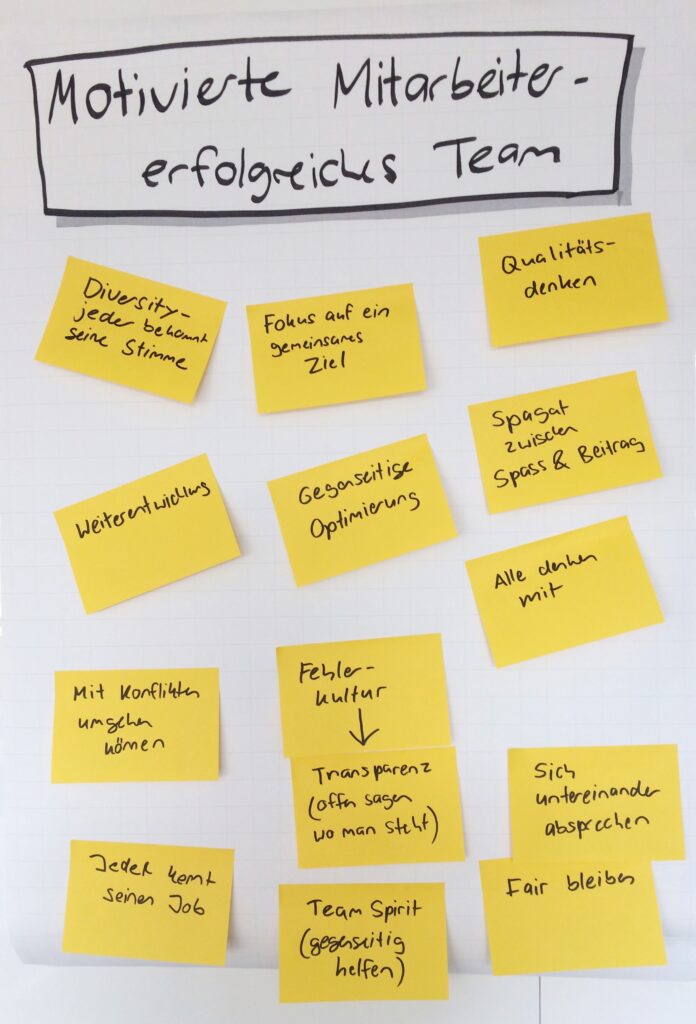 Motivierte Mitarbeiter-
erfolgreiches Team
Diversity-
jeder bekommt
seine Stimme
Fokus auf ein
gemeinsames
Ziel
Qualitäts-
denken
Weiterentwicklung
Gegenseitige
Optimierung
Spagat
zwischen
Spass & Beitrag
Alle denken
mit
Mit Konflikten
umgehen
können
Fehler-
kultur
↓
Transparenz
(offen sagen
wo man steht)
Sich
untereinander
absprechen
Jeder kennt
seinen Job
Team Spirit
(gegenseitig
helfen)
Fair bleiben